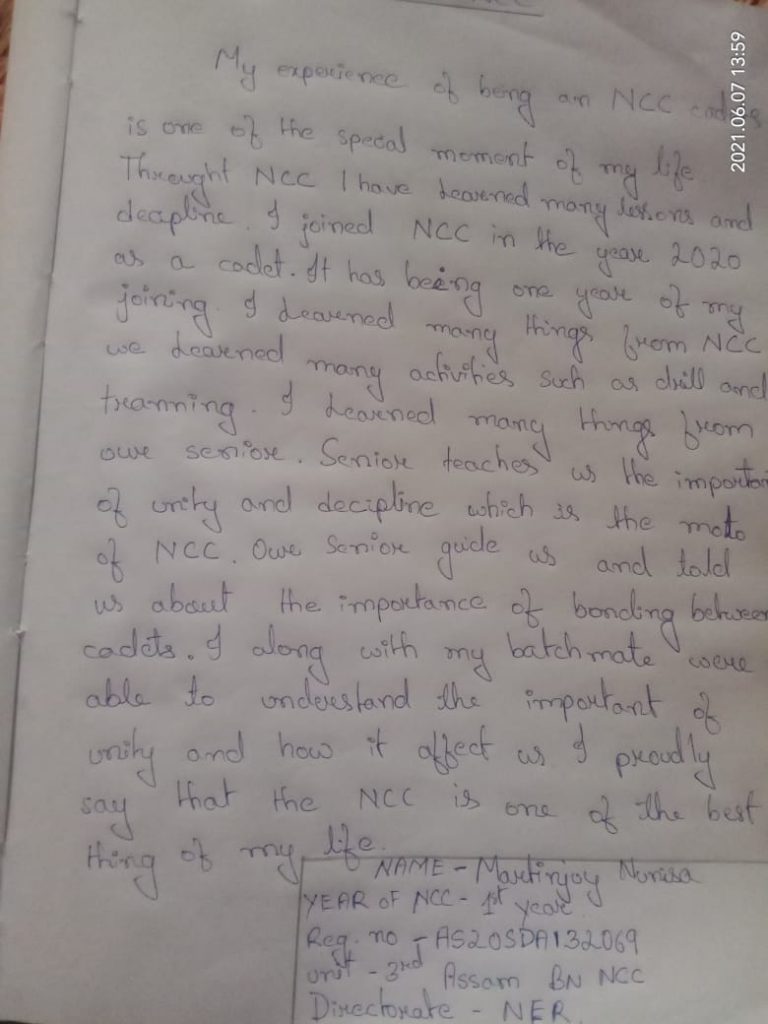 My experience of being an NCC cadets
is one of the specal moment of my life.
Throught NCC I have learned many lessons and
decapline. I joined NCC in the year 2020
as a cadet. It has being one year of my
joining. I learned many things from NCC
we learned many activities such as drill and
tranning. I learned many things from
owr senior. Senior teaches us the importan
of unity and decipline which is the moto
of NCC. Owr Senior guide us and told
us about the importance of bonding between
cadets. I along with my batchmate were
able to understand the important of
unity and how it affect us I proudly
say that the NCC is one of the best
thing of my life.
NAME - Martinjoy
YEAR OF NCC - 1st year
Reg. no - AS20SDA132069
Unit - 3rd Assam BN NCC
Directorate - NER.
2021.06.07 13:59